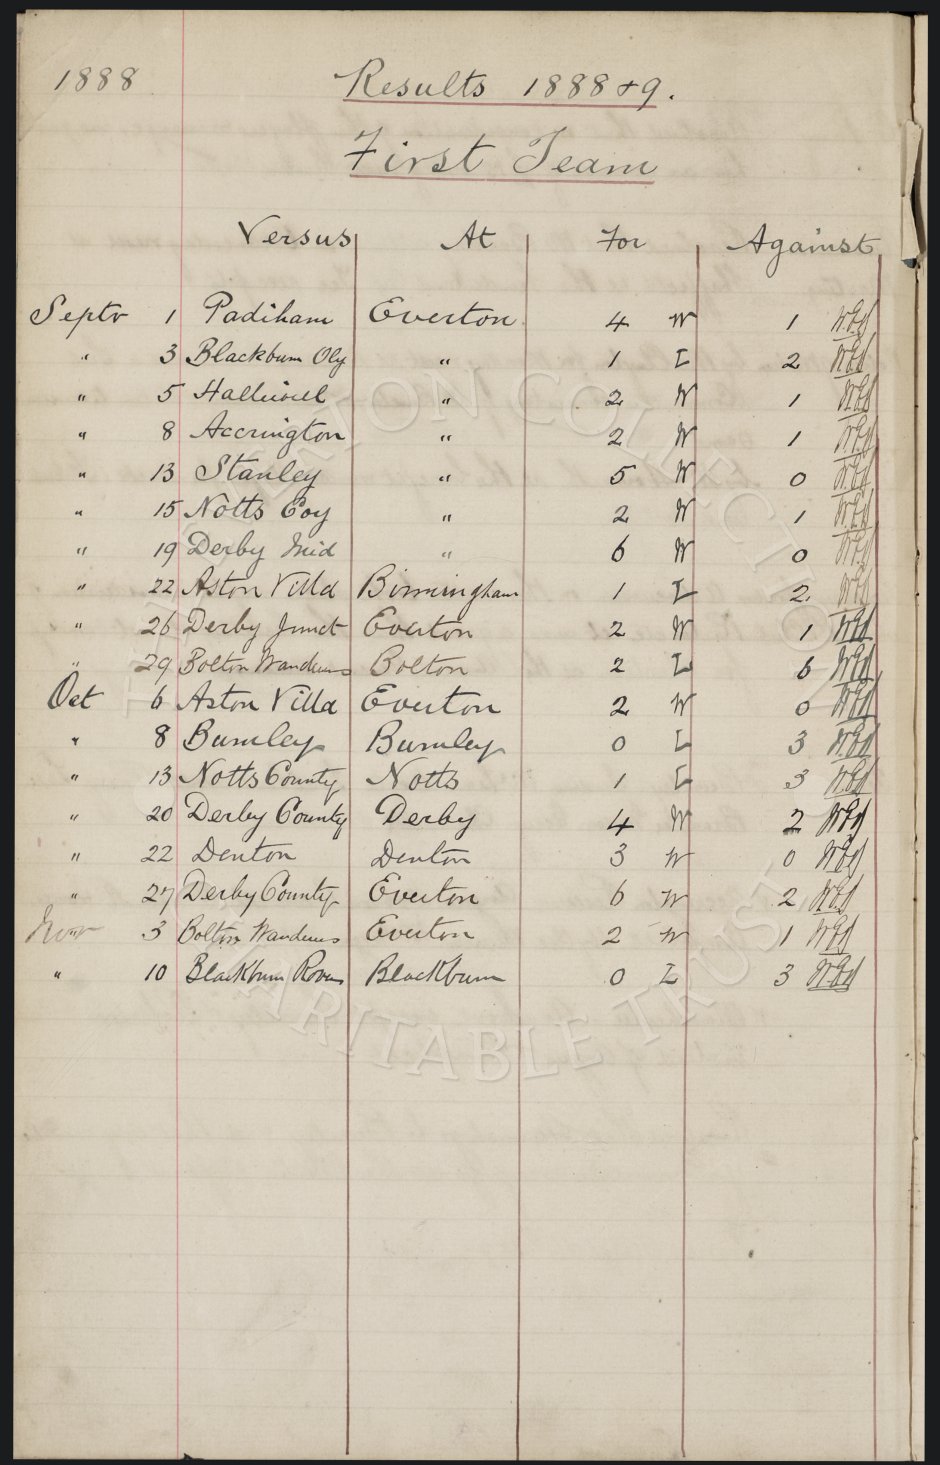 1888
Results 1888 & 9.
First Team
Versus At For Against
Septr 1 Padiham Everton 4 W 1
" 3 Blackburn Oly " 1 L 2
" 5 Halliwell " 2 W 1
" 8 Accrington " 2 W 1
" 13 Stanley " 5 W 0
" 15 Notts Coy " 2 W 1
" 19 Derby Mid " 6 W 0
" 22 Aston Villa Birmingham 1 L 2
" 26 Derby Junct Everton 2 W 1
" 29 Bolton Wanderers Bolton 2 L 6
Oct 6 Aston Villa Everton 2 W 0
" 8 Burnley Burnley 0 L 3
" 13 Notts County Notts 1 L 3
" 20 Derby County Derby 4 W 2
" 22 Denton Denton 3 W 0
" 27 Derby County Everton 6 W 2
Nov 3 Bolton Wanderers Everton 2 W 1
" 10 Blackburn Rovers Blackburn 0 L 3
EVERTON COLLECTION
CHARITABLE TRUST